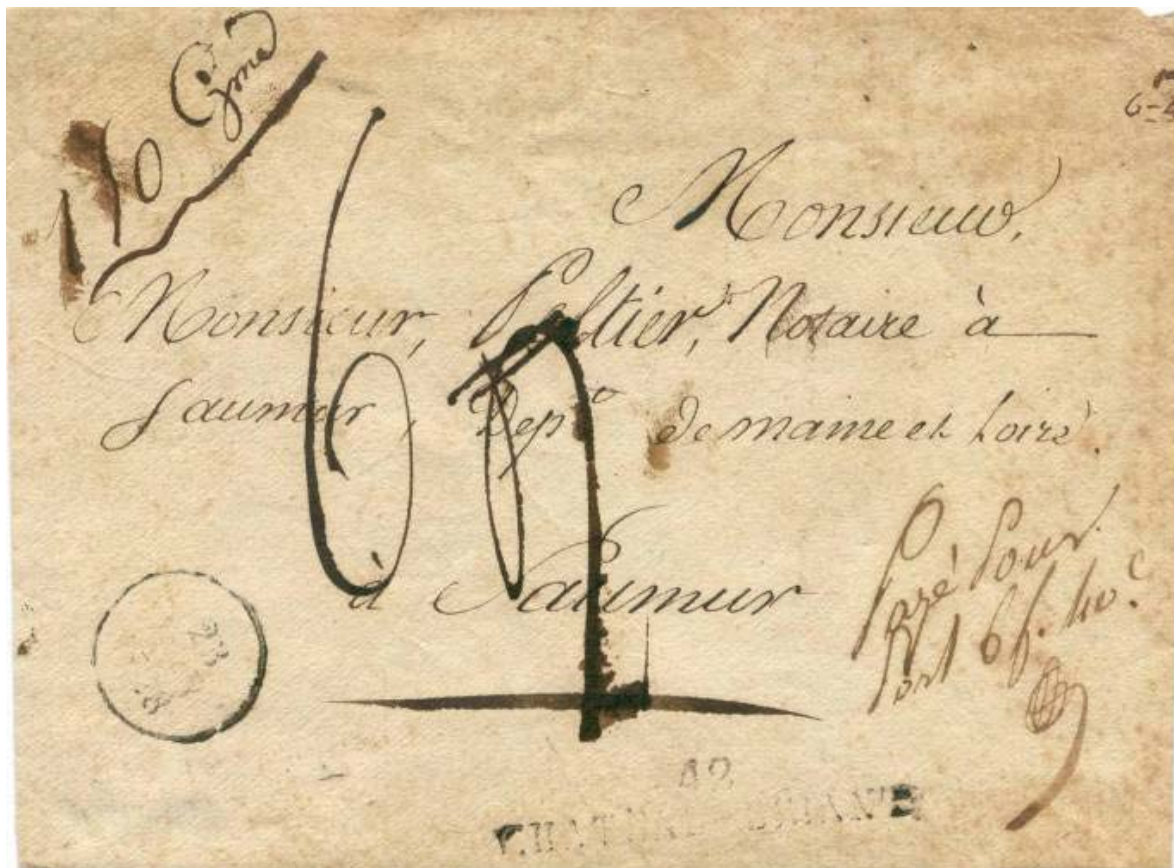 110 Gmes
6-4
Monsieur,
Monsieur, Peltier, Notaire à
Saumur, Dept de maine et Loire.
à Saumur
Payé Pour
Port 6 f. 40c
23
42
CHATEAU-BRIANT